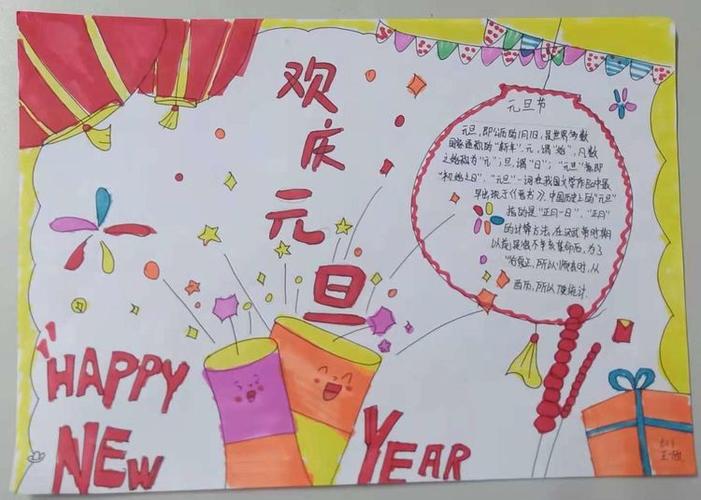 欢庆元旦
元旦节
元旦，即公历的1月1日，是世界多数
国家通称的“新年”.元，谓“始”，凡数
之始称为“元”；旦，谓“日”；“元旦”意即
“初始之日”.“元旦”一词在我国文学作品中最
早出现于《晋书》.中国历史上的“元旦”
指的是“正月一日”.“正月”
的计算方法，在汉武帝时期
以前是很不
为了
所以
从
西历，所以
HAPPY
NEW
YEAR